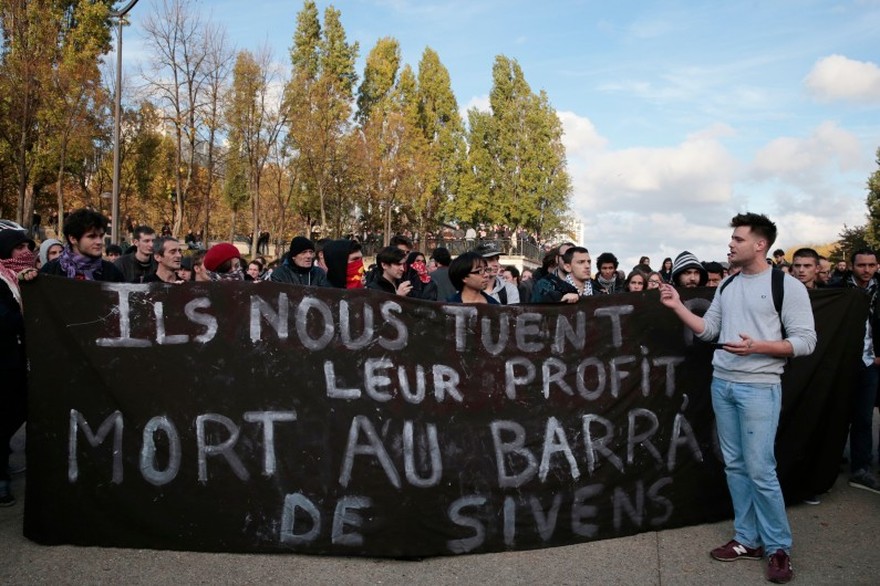 ILS NOUS TUENT
LEUR PROFIT
MORT AU BARRA
DE SIVENS